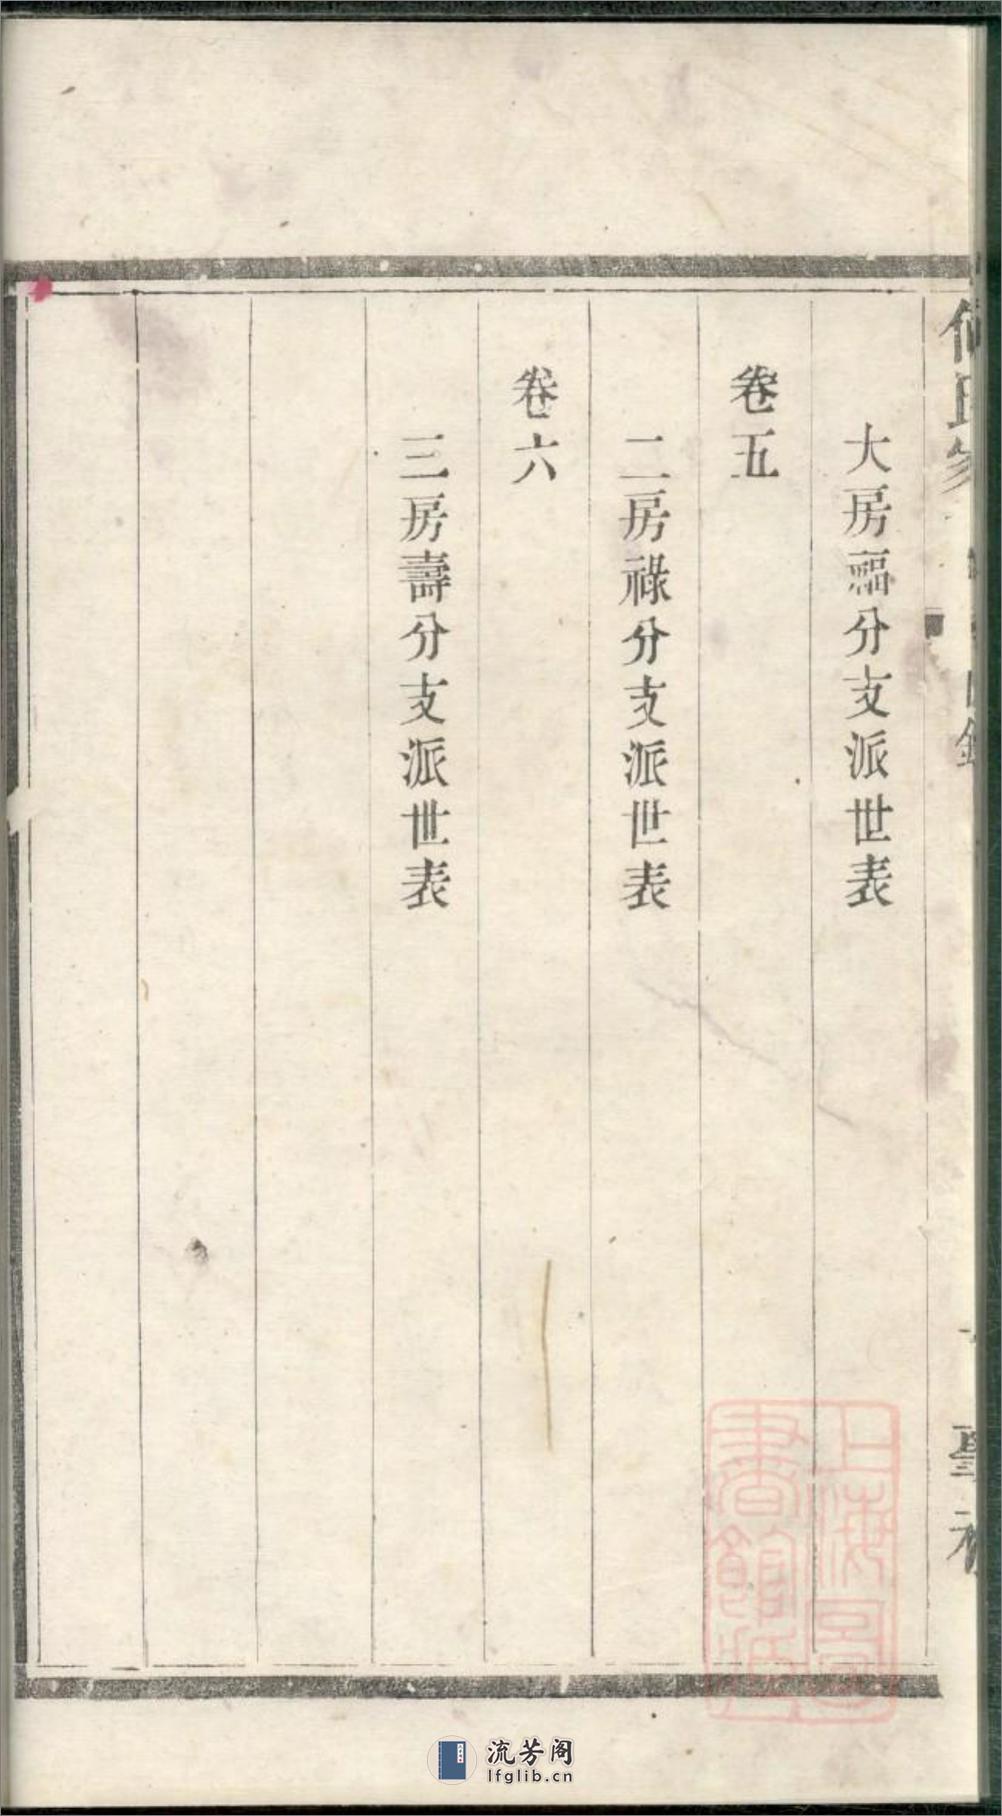 大房福分支派世表
卷五
二房祿分支派世表
卷六
三房壽分支派世表
上海圖書館藏
流芳阁
lfglib.cn